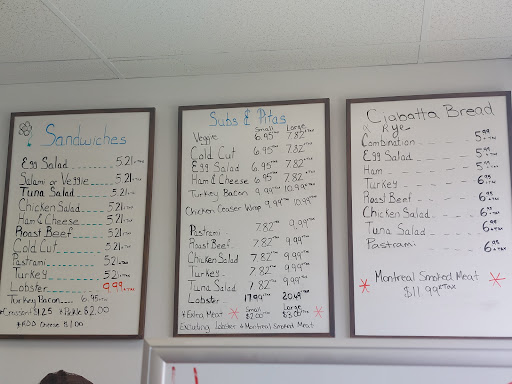 Sandwiches
Egg Salad 5.21+TAX
Salami or Veggie 5.21+TAX
Tuna Salad 5.21+TAX
Chicken Salad 5.21+TAX
Ham & Cheese 5.21+TAX
Roast Beef 5.21+TAX
Cold Cut 5.21+TAX
Pastrami 5.21+TAX
Turkey 5.21+TAX
Lobster 9.99+TAX
Turkey Bacon 6.95+TAX
*Croissant $1.25 *Pickle $2.00
*ADD Cheese $1.00
Subs & Pitas
Small Large
Veggie 6.95+TAX 7.82+TAX
Cold Cut 6.95+TAX 7.82+TAX
Egg Salad 6.95+TAX 7.82+TAX
Ham & Cheese 6.95+TAX 7.82+TAX
Turkey Bacon 9.99+TAX 10.99+TAX
Chicken Ceaser Wrap 9.99+TAX 10.99+TAX
Pastrami 7.82+TAX 9.99+TAX
Roast Beef 7.82+TAX 9.99+TAX
Chicken Salad 7.82+TAX 9.99+TAX
Turkey 7.82+TAX 9.99+TAX
Tuna Salad 7.82+TAX 9.99+TAX
Lobster 17.99+TAX 20.49+TAX
* Extra Meat * Small $2.00+TAX Large $3.00+TAX *
Excluding Lobster & Montreal Smoked Meat
Ciabatta Bread
& Rye
Combination 5.99+TAX
Egg Salad 5.99+TAX
Ham 5.99+TAX
Turkey 6.99+TAX
Roast Beef 6.99+TAX
Chicken Salad 6.99+TAX
Tuna Salad 6.99+TAX
Pastrami 6.99+TAX
* Montreal Smoked Meat *
$11.99+TAX